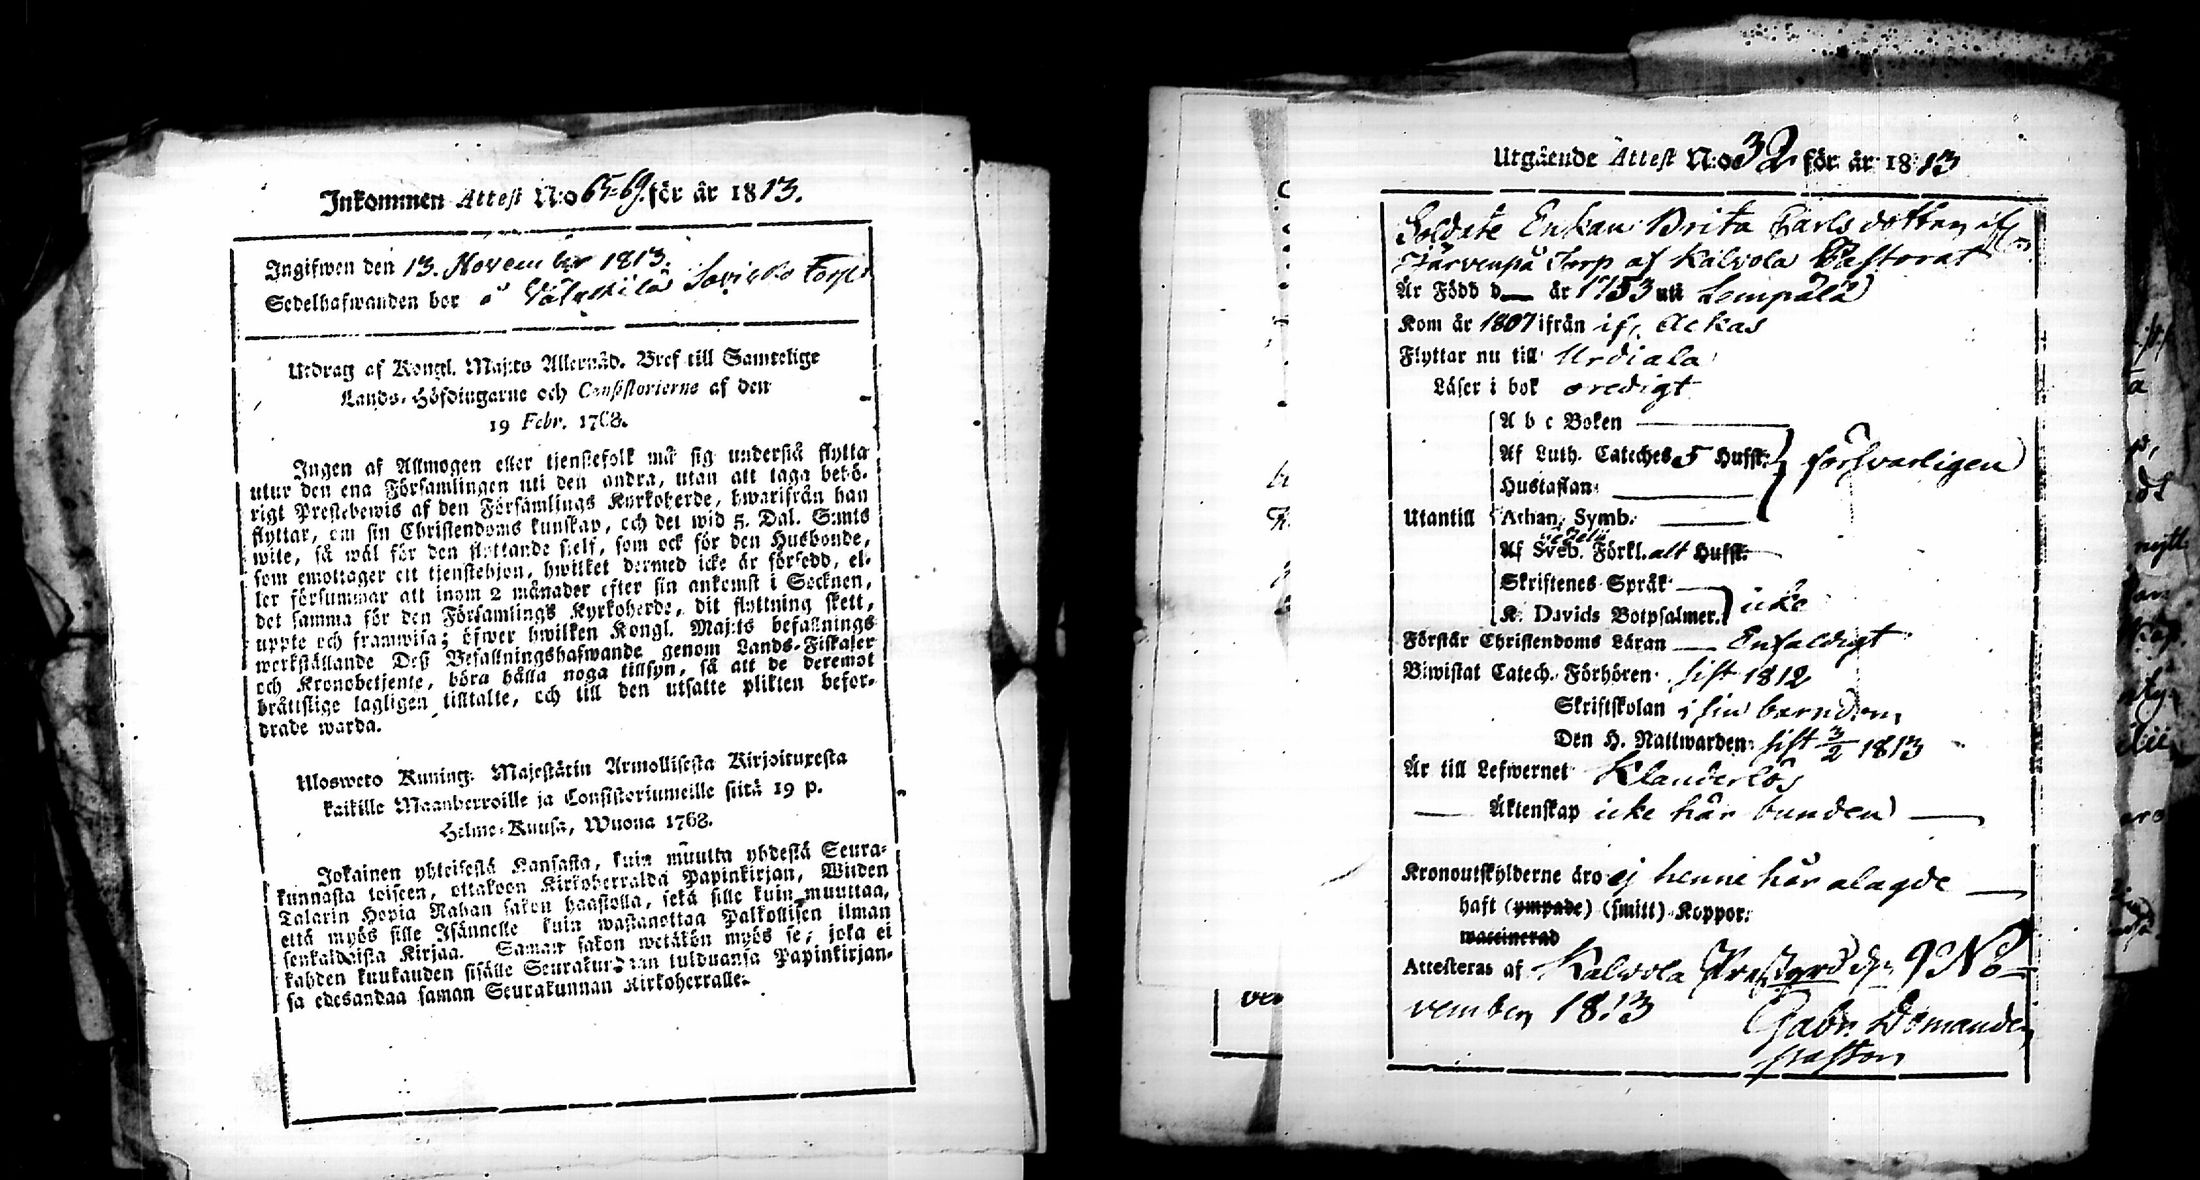 Inkommen Attest N:o 65-69. för år 1813.
Ingifwen den 13. November 1813.
Sedelhafwanden bor å Torp
Utdrag af Kongl. Maj:ts Allernåd. Bref till Samtelige
Lands-Höfdingarne och Consistorierne af den
19 Febr. 1768.
Ingen af Allmogen eller tjenstefolk må sig understå flytta
utur den ena Församlingen uti den andra, utan att taga behö-
rigt Prestebewis af den Församlings Kyrkoherde, hwarifrån han
flyttar, om sin Christendoms kunskap, och det wid 5. Dal. S:mts
wite, så wäl för den flyttande sielf, som ock för den Husbonde,
som emottager ett tjenstehjon, hwilket dermed icke är försedd, el-
ler försummar att inom 2 månader efter sin ankomst i Socknen,
det samma för den Församlings Kyrkoherde, dit flyttning skett,
uppte och framwisa; öfwer hwilken Kongl. Maj:ts befallnings
werkställande Deß Befallningshafwande genom Lands-Fiskaler
och Kronobetjente, böra hålla noga tillsyn, så att de deremot
bråttslige lagligen tilltalte, och till den utsatte plikten befor-
drade warda.
Ulosweto Kuning: Majestätin Armollisesta Kirjoituxesta
kaikille Maanherroille ja Consistoriumeille siitä 19 p.
Helme-Kuusa, Wuona 1768.
Jokainen yhteisestä Kansasta, kuin muutta yhdestä Seura-
kunnasta toiseen, ottakoon Kirkoherralda Papinkirjan, Wiiden
Talarin Hopia Rahan sakon haastolla, sekä sille kuin muuttaa,
että myös sille Isännelle kuin wastanottaa Palkollisen ilman
senkaldaista Kirjaa. Saman sakon wetäkön myös se, joka ei
kahden kuukauden sisälle Seurakundaan tulduansa Papinkirjan-
sa edesandaa saman Seurakunnan Kirkoherralle.
Utgående Attest N:o 32 för år 1813
Soldate Enkan Brita Carlsdotter ifrån
Järvenpä Torp af Kalvola Pastorat
År Född d— år 1753 uti Lempälä
Kom år 1807 ifrån if, Ackas
Flyttar nu till Urdiala
Läser i bok oredigt
A b c Boken
Af Luth. Cateches 5 Hufst: försvarligen
Hustaflan
Utantill Athan. Symb.
Af Sveb. Förkl. alt Hufst:
Skriftenes Språk
K. Davids Botpsalmer. icke
Förstår Christendoms Läran — Enfaldigt
Biwistat Catech. Förhören sist 1812
Skriftskolan i sin barndom
Den H. Nattwarden sist 3/2 1813
Är till Lefwernet Klanderlös
— Äktenskap icke här bunden —
Kronoutskylderne äro ej henne här alagde —
haft (ympade) (smitt) Koppor:
waccinerad
Attesteras af Kalvola Prestgård d. 9 No-
vember 1813 Gabr. Domander
Pastor